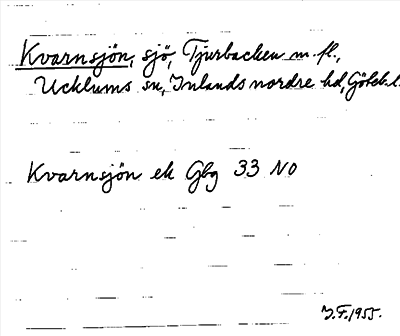 Kvarnsjön, sjö, Tjurbacken m.fl.,
Ucklums sn, Inlands nordre hd, Göteb.l.
Kvarnsjön ek Gbg 33 NO
J.F. 1955.